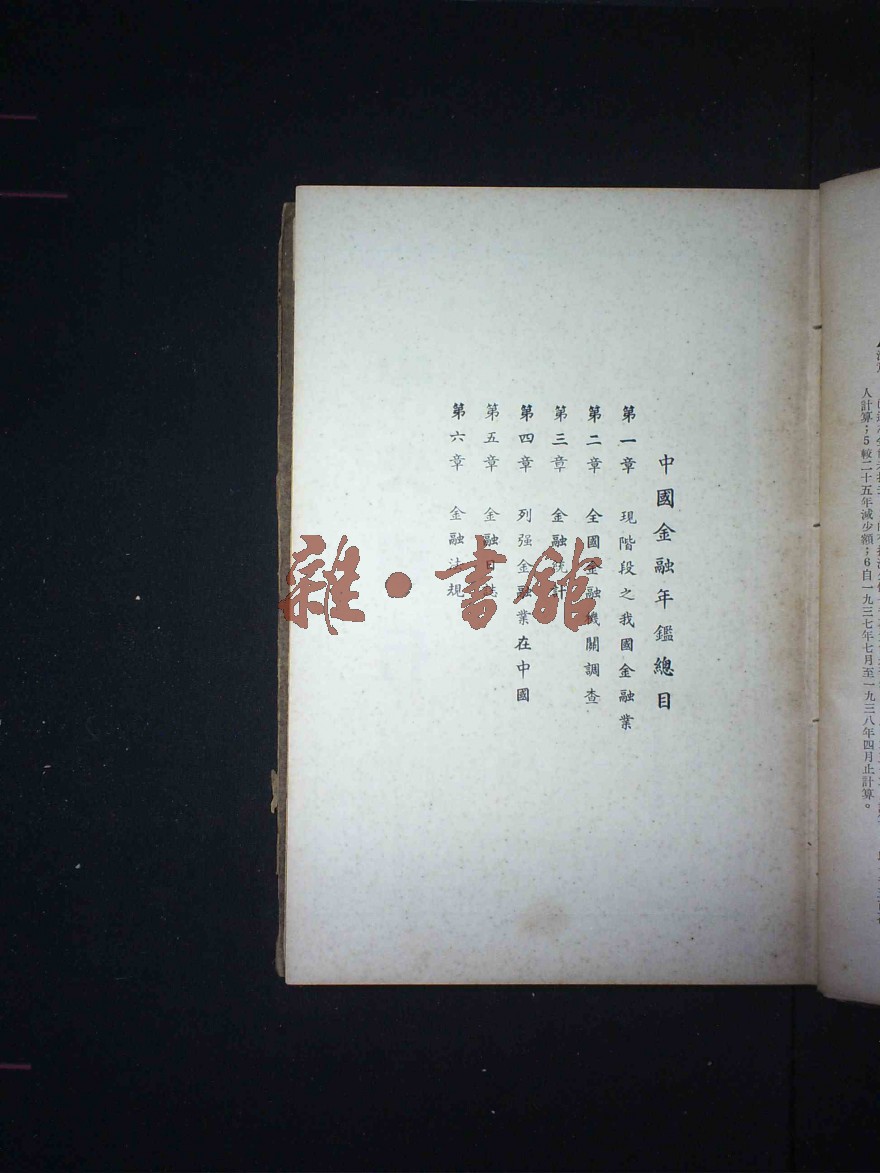 中國金融年鑑總目
第一章 現階段之我國金融業
第二章 全國金融機關調查
第三章 金融統計
第四章 列强金融業在中國
第五章 金融日誌
第六章 金融法規
雜·書館
人計算；5較二十五年減少額；6自一九三七年七月至一九三八年四月止計算。